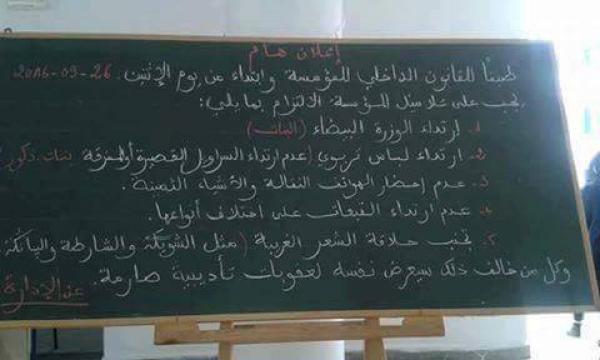 إعلان هام
طبقًا للقانون الداخلي للمؤسسة وابتداء من يوم الإثنين 26-09-2016
يجب على تلاميذ المؤسسة الالتزام بما يلي:
1. ارتداء الوزرة البيضاء (البنات)
2. ارتداء لباس تربوي (عدم ارتداء السراويل القصيرة أو الممزقة بنات، ذكور
3. عدم إحضار الهواتف النقالة والأشياء الثمينة.
4. عدم ارتداء القبعات على اختلاف أنواعها.
5. تجنب حلاقة الشعر الغريبة (مثل الشويكة والشارطة واليانكة
وكل من خالف ذلك سيعرض نفسه لعقوبات تأديبية صارمة.
عن الإدارة